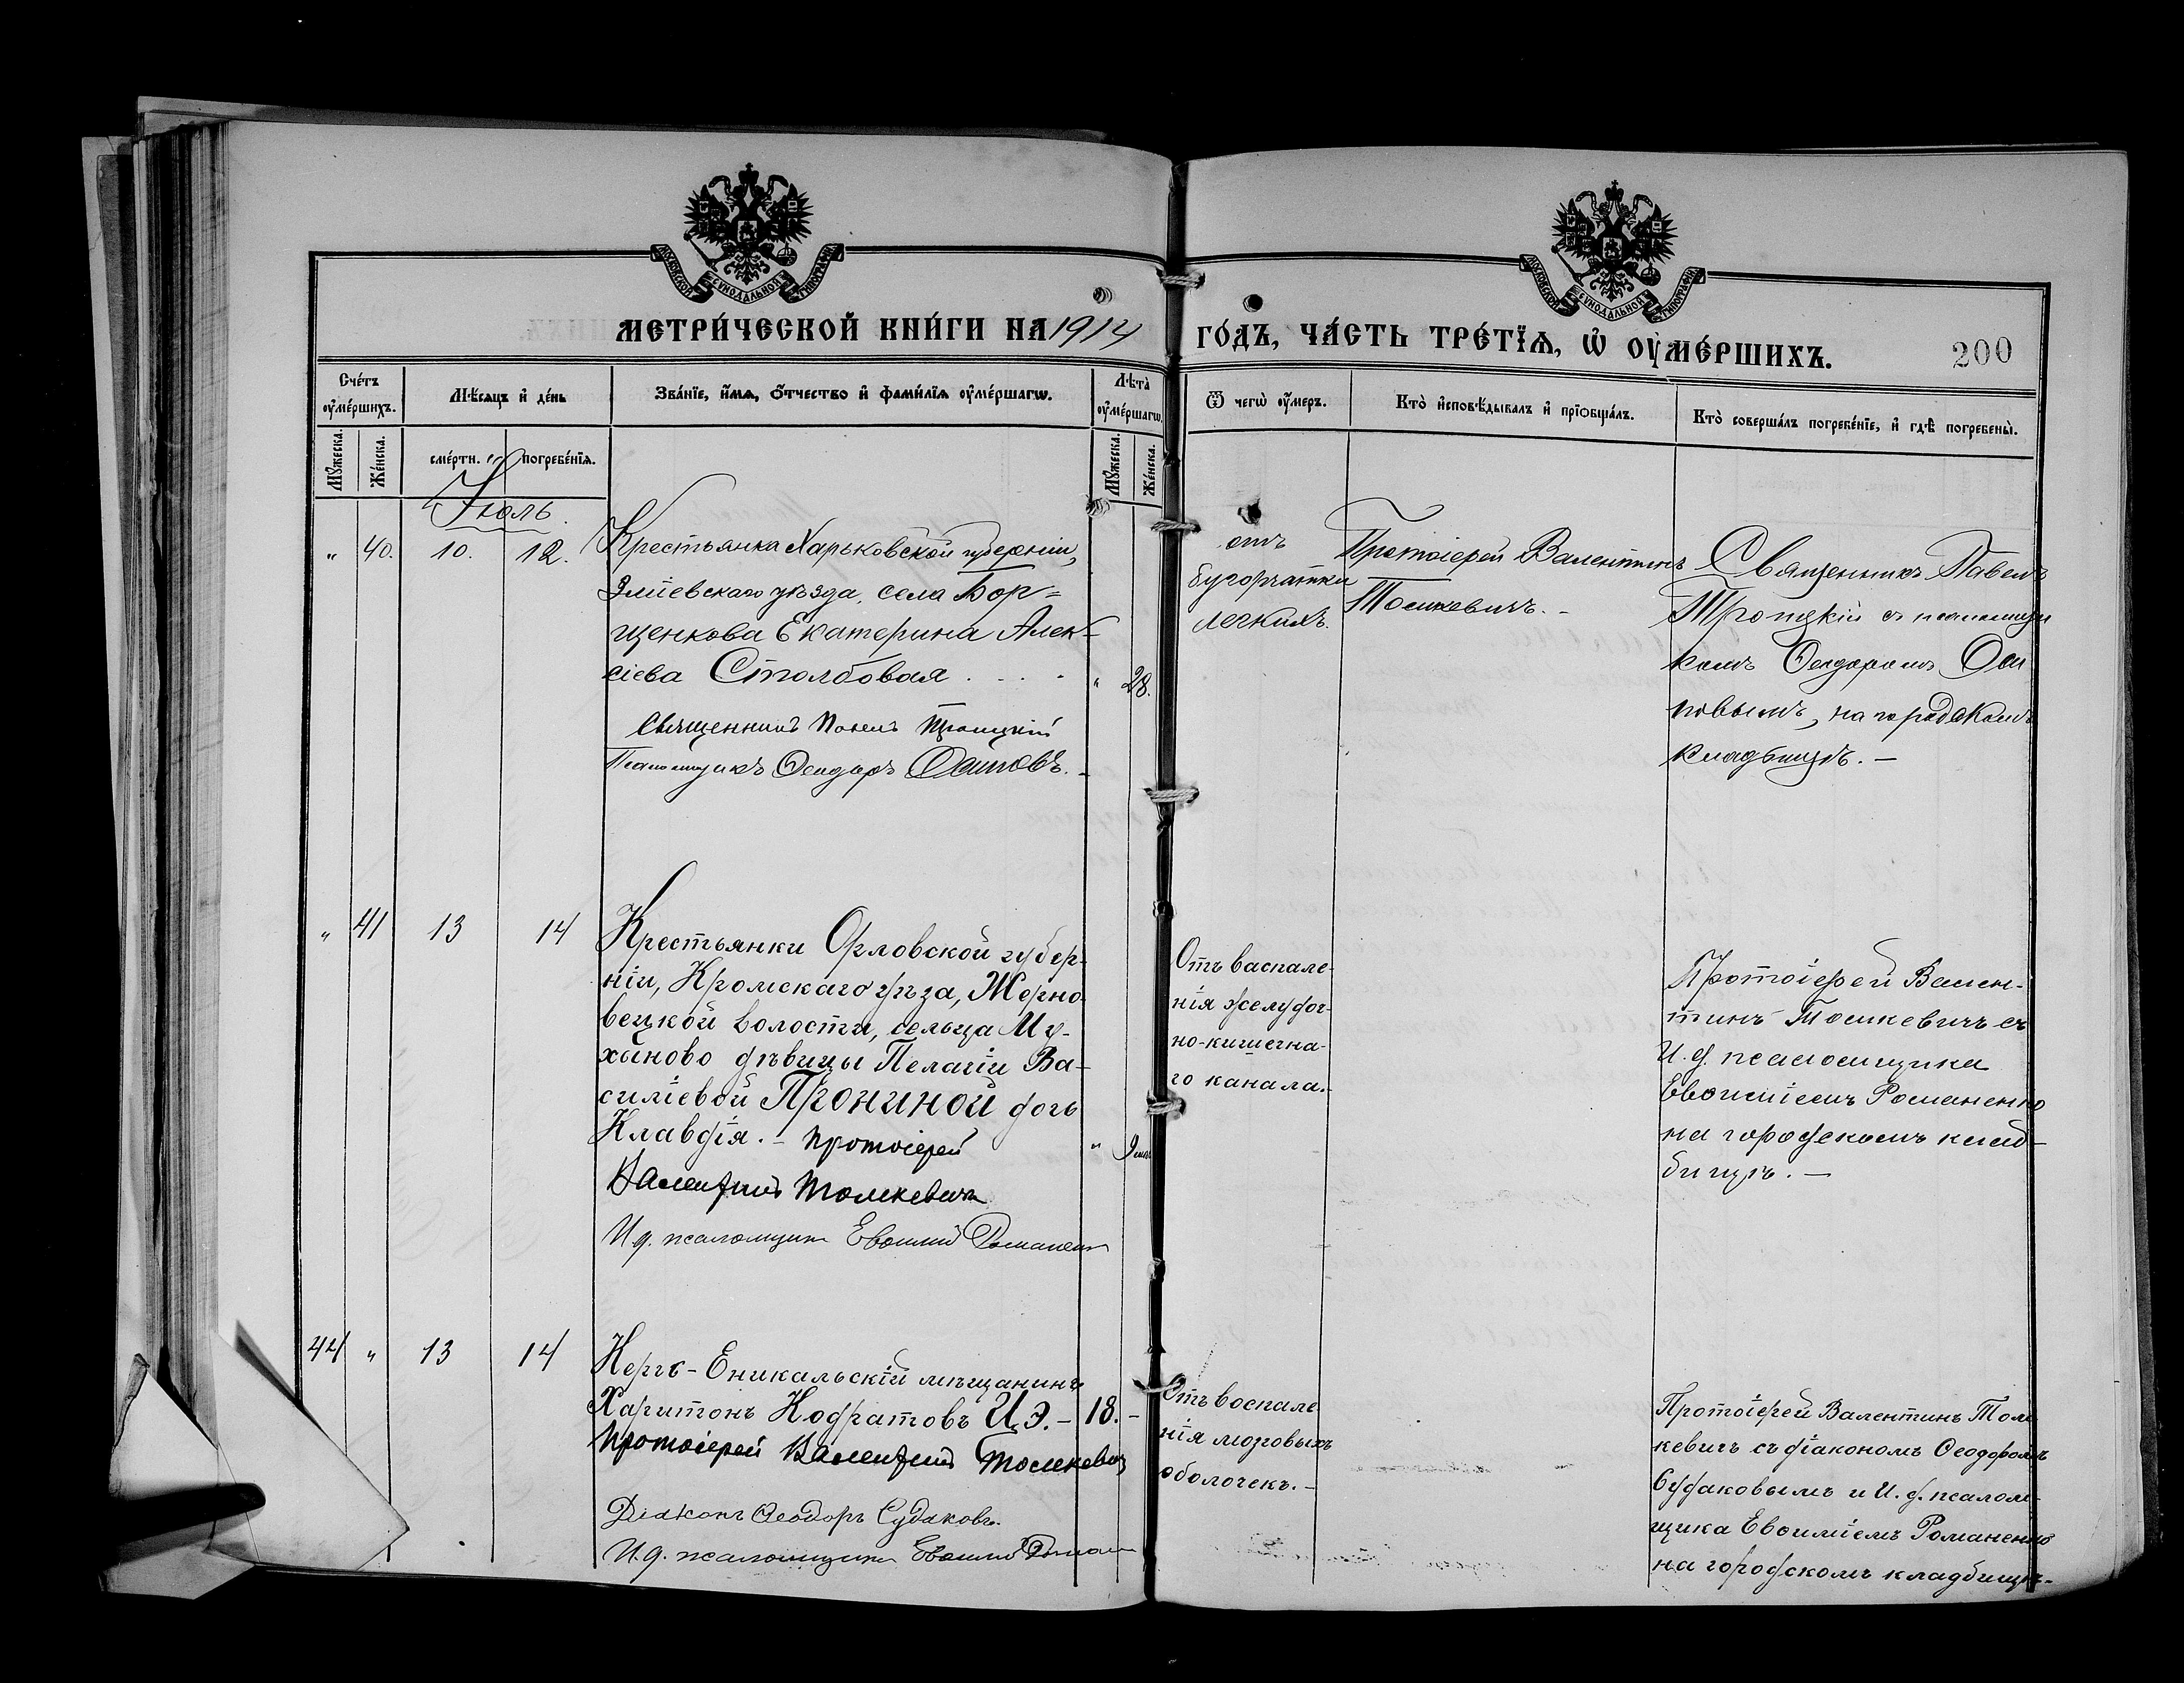 МОСКОВСКОЙ СѴНОДАЛЬНОЙ ТИПОГРАФІИ
МОСКОВСКОЙ СѴНОДАЛЬНОЙ ТИПОГРАФІИ
МЕТРИ́ЧЕСКОЙ КНИ́ГИ НА 1914 ГО́ДЪ, ЧА́СТЬ ТРЕ́ТЇѦ, Ѡ҆ ОУ҆МЕ́РШИХЪ.
200
Сче́тъ оу҆ме́ршихъ.
Мѣ́сяцъ и҆ де́нь
Зва́нїе, и҆́мѧ, о҆́тчество и҆ фами́лїѧ оу҆ме́ршагѡ.
Лѣта̀ оу҆ме́ршагѡ.
Ѿ чегѡ̀ оу҆́меръ.
Кто̀ и҆сповѣ́дывалъ и҆ прїобща́лъ.
Кто̀ соверша́лъ погребе́нїе, и҆ гдѣ̀ погребены̀.
Мꙋ́жеска. Же́нска.
сме́рти. погребе́нїѧ.
Мꙋ́жеска. Же́нска.
Іюль.
" 40. 10. 12.
Крестьянка Харьковской губерніи,
Зміевскаго уѣзда, села Бор=
щенкова Екатерина Алек-
сіева Столбовая . . . . " 28.
Священникъ Павелъ Троицкій
Псаломщикъ Ѳеодоръ Осиповъ. -
отъ
бугорчатки
легкихъ.
Протоіерей Валентинъ
Томкевичъ. -
Священникъ Павелъ
Троицкій съ псаломщи
комъ Ѳеодоромъ Оси
повымъ, на городскомъ
кладбищѣ. -
" 41 13 14
Крестьянки Орловской губер-
ніи, Кромскаго уѣза, Жерно-
вецкой волости, сельца Му-
ханово дѣвицы Пелагіи Ва-
силіевой Прониной дочь
Клавдія. - Протоіерей " 9 мѣс
Валентинъ Томкевичъ
И.д. псаломщика Евѳимій Романенко
Отъ васпале-
нія желудоч-
но-кишечна-
го канала.-
Протоіерей Вален-
тинъ Томкевичъ съ
И.д. псаломщика
Евѳиміемъ Романенко
на городскомъ клад-
бищѣ. -
44 " 13 14
Керчь-Еникальскій мѣщанинъ
Харитонъ Кодратовъ Цэ. - 18. -
Протоіерей Валентинъ Томкевичъ
Діаконъ Ѳеодоръ Судаковъ.
И.д. псаломщика Евѳимій
Отъ воспале
нія мозговыхъ
оболочекъ. -
Протоіерей Валентинъ Том
кевичъ съ діакономъ Ѳеодоромъ
Судаковымъ и И.д. псалом-
щика Евѳиміемъ Романенко
на городскомъ кладбищѣ.-